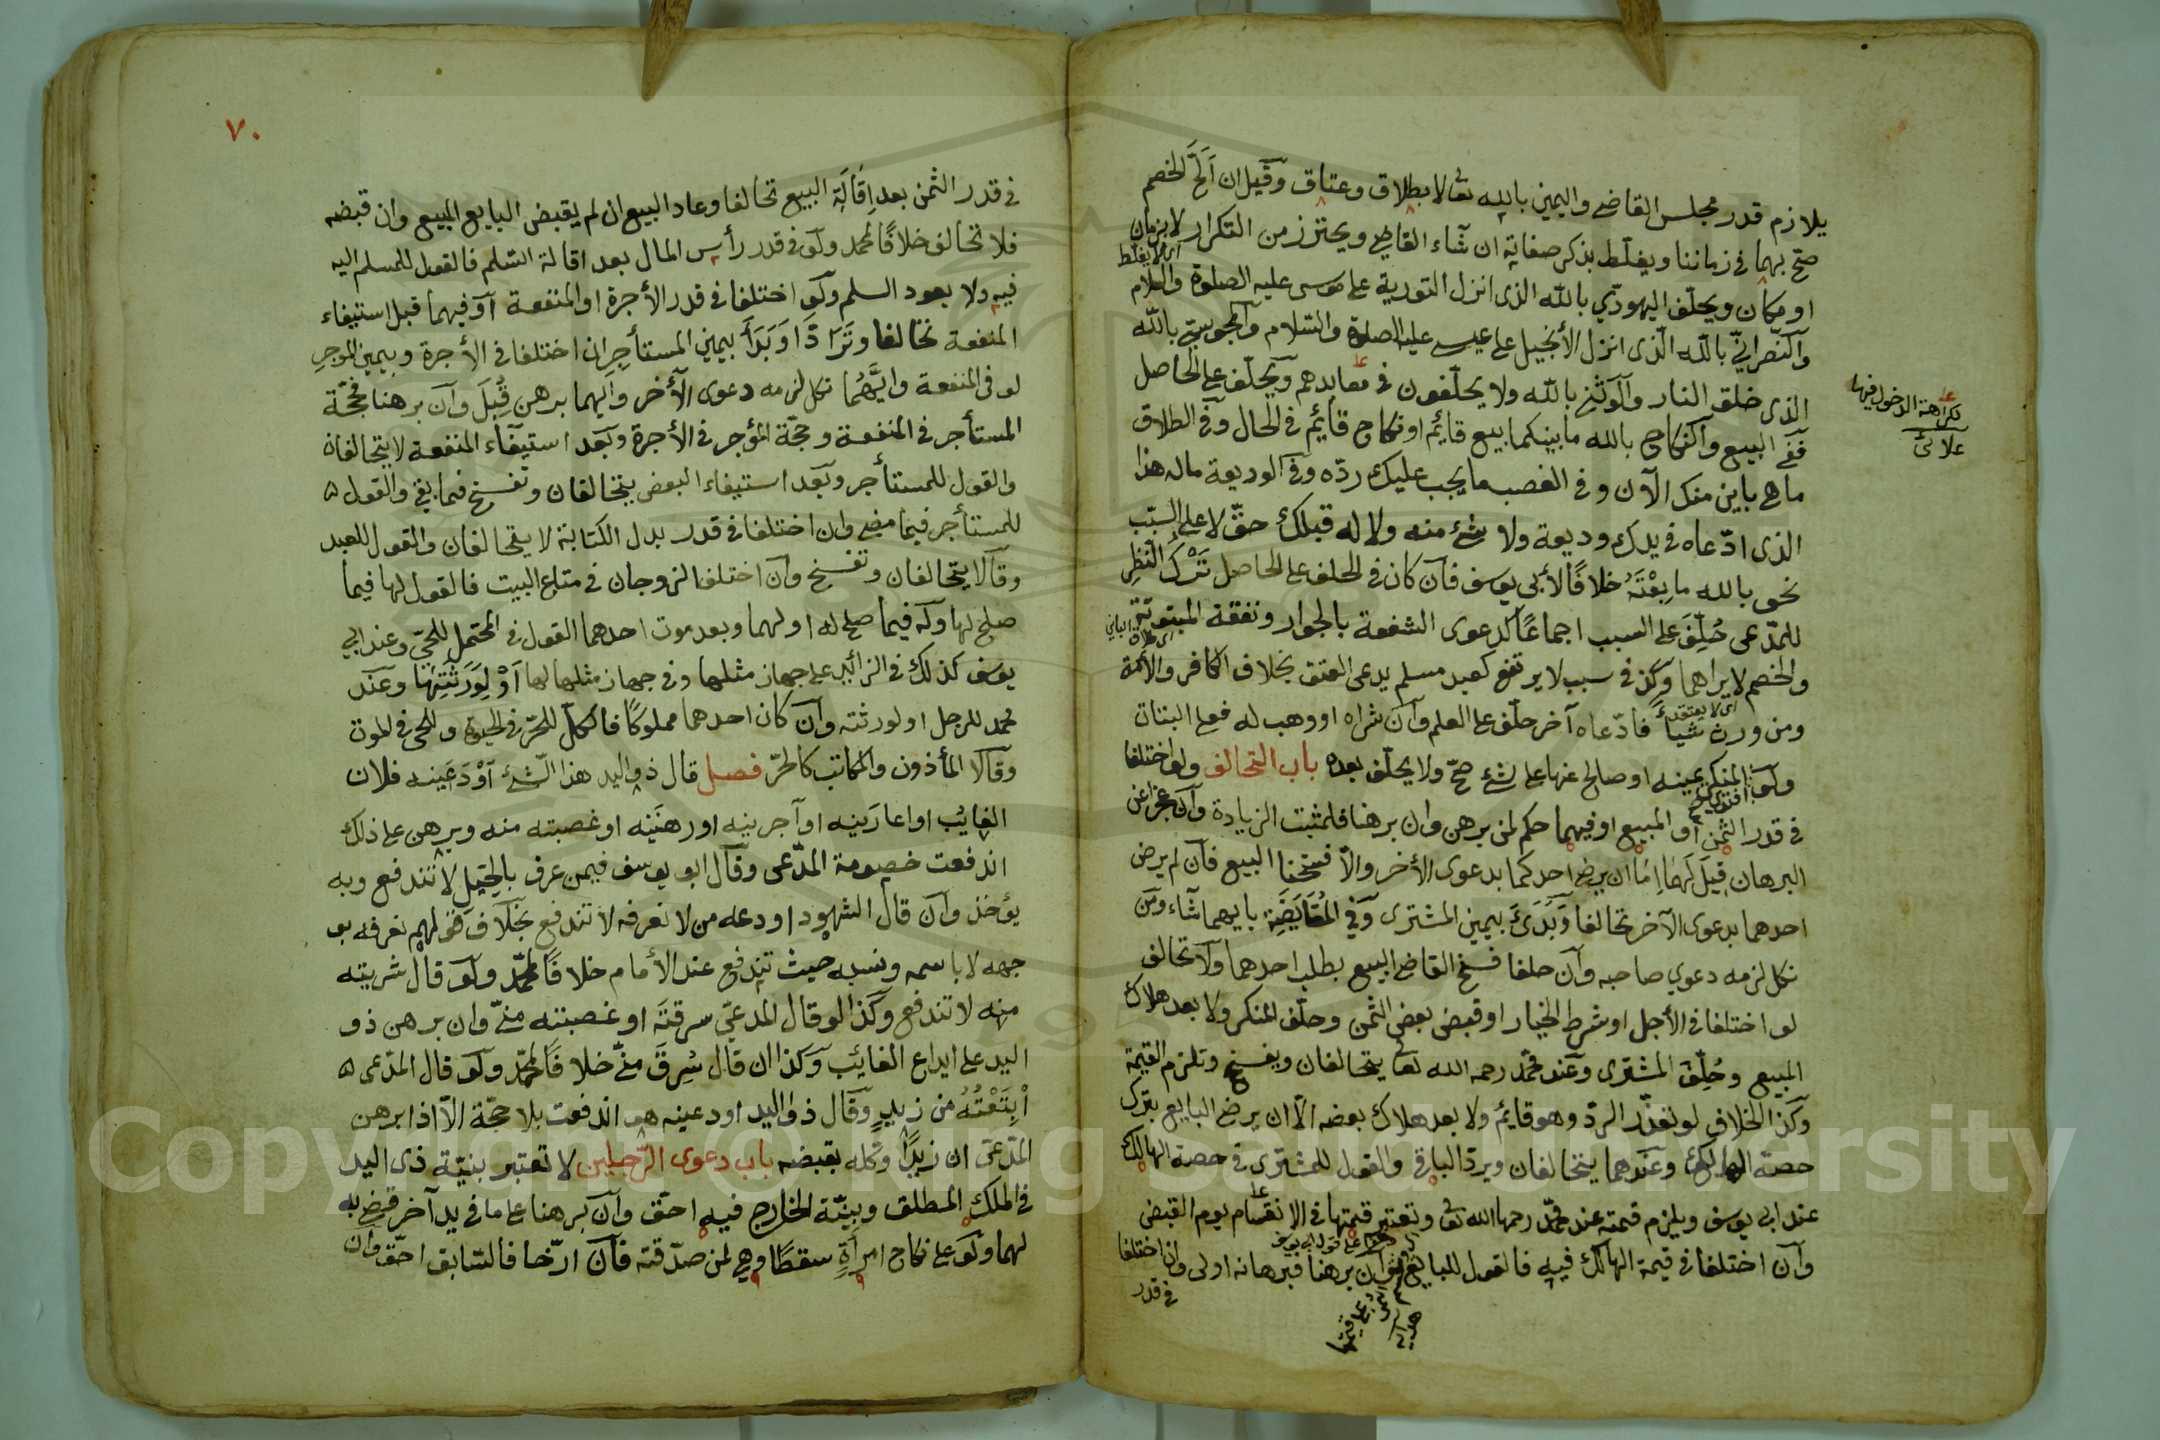 يلازم قدر مجلس القاضي واليمين بالله تعالى لا بطلاق وعتاق وقيل ان الحّ الخصم
صحّ بهما في زماننا ويغلّظ بذكر صفاته ان شاء القاضي ويحترز من التكرار لا بزمان
او مكان ويحلّف اليهوديّ بالله الذى انزل التورية على موسى عليه الصلوة والسلام
والنّصرانيّ بالله الّذى انزل الأنجيل على عيسى عليه الصلوة والسّلام والمجوسيّ بالله
الذى خلق النار والوثنيّ بالله ولا يحلّفون في معابدهم ويحلّف على الحاصل
ففى البيع والنكاح بالله ما بينكما بيع قائم او نكاح قائم في الحال وفى الطلاق
ما هي باين منك الآن وفى الغصب ما يجب عليك ردّه وفى الوديعة ماله هذا
الذى ادّعاه في يدك وديعة ولا شئ منه ولا له قبلك حقّ لا على السبب
نحو بالله ما بعته خلافًا لأبي يوسف فان كان في الحلف على الحاصل ترك النّظر
للمدّعى حُلّف على السبب اجماعًا كدعوى الشفعة بالجوار ونفقة المبتوتة
والخصم لا يراهما وكذا في سبب لا يرتفع كعبد مسلم يدعى العتق بخلاف الكافر والأمة
ومن ورث شيأً فادّعاه آخر حلّف على العلم وان شراه او وهب له فعلى البتات
ولو افتدى المنكر يمينه او صالح عنها على شئ صحّ ولا يحلّف بعده باب التحالف ولو اختلفا
في قدر الثمن أو المبيع او فيهما حكم لمن برهن وان برهنا فلمثبت الزيادة وان عجزا عن
البرهان قيل لهما امّا ان يرضى احدكما بدعوى الأخر والاّ فسخنا البيع فان لم يرض
احدهما بدعوى الآخر تحالفا وبدئ بيمين المشترى وفي المقايضة بايهما شاء ومن
نكل لزمه دعوى صاحبه وان حلفا فسخ القاضي البيع بطلب احدهما ولا تحالف
لو اختلفا في الأجل او شرط الخيار او قبض بعض الثمن وحلّف المنكر ولا بعد هلاك
المبيع وحلّف المشترى وعند محمّد رحمه الله تعالى يتحالفان ويفسخ وتلزم القيمة
وكذا الخلاف لو تعذّر الردّ وهو قايم ولا بعد هلاك بعضه الّا ان يرضى البايع بترك
حصة الهالك وعندهما يتحالفان ويردّ الباقي والقول للمشترى في حصة الهالك
عند ابي يوسف ويلزم قيمته عند محمّد رحمها الله تعالى وتعتبر قيمتها في الانقسام يوم القبض
وان اختلفا في قيمة الهالك فيه فالقول للبايع وان برهنا فبرهانه اولى وان اختلفا
في قدر
اى لا يغلظ
لكراهة الدخول فيها
علائى
اى لا يعتقد
على قول ابي يوسف
على قيمتها
هدايه
٧٠
في قدر الثمن بعد إقالة البيع تحالفا وعاد البيع ان لم يقبض البايع المبيع وان قبضه
فلا تحالف خلافًا لمحمد ولو في قدر رأس المال بعد اقالة السّلم فالقول للمسلم اليه
فيه ولا يعود السلم ولو اختلفا في قدر الأجرة او المنفعة أو فيهما قبل استيفاء
المنفعة تحالفا وترادّا وبدأ بيمين المستأجر ان اختلفا في الأجرة وبيمين الموجر
لو في المنفعة وايّهما نكل لزمه دعوى الآخر وايّهما برهن قُبل وان برهنا فحجّة
المستأجر في المنفعة وحجّة المؤجر في الأجرة وبعد استيفاء المنفعة لا يتحالفان
والقول للمستأجر وبعد استيفاء البعض يتحالفان وتفسخ فيما بقي والقول
للمستأجر فيما مضى وان اختلفا في قدر بدل الكتابة لا يتحالفان والقول للعبد
وقالا يتحالفان وتفسخ وان اختلفا الزوجان في متاع البيت فالقول لها فيما
صلح لها وله فيما صلح له او لهما وبعد موت احدهما القول في المحتمل للحيّ وعند ابي
يوسف كذلك في الزائد على جهاز مثلها وفي جهاز مثلها لها أو لورثتها وعند
محمد للرجل او لورثته وان كان احدهما مملوكًا فالكلّ للحرّ في الحيوة وللحي في الموت
وقالا المأذون والمكاتب كالحرّ فصل قال ذو اليد هذا الشّئ أودعنيه فلان
الغائب او اعارنيه او آجرنيه او رهننيه او غصبته منه وبرهن على ذلك
اندفعت خصومة المدّعى وقال ابو يوسف فيمن عرف بالحيل لا تندفع وبه
يؤخذ وان قال الشهود اودعه من لا نعرفه لا تندفع بخلاف قولهم نعرفه بو
جهه لا باسمه ونسبه حيث تندفع عند الأمام خلافًا لمحمّد ولو قال شريته
منه لا تندفع وكذا لو قال المدعى سرقته او غصبته منّي وان برهن ذو
اليد على ايداع الغائب وكذا ان قال سُرق منّي خلافًا لمحمّد ولو قال المدّعى
ابتعته من زيد وقال ذو اليد اودعنيه هو اندفعت بلا حجّة الّا اذا برهن
المدّعى ان زيدًا وكله بقبضه باب دعوى الرّجلين لا تعتبر بينّة ذى اليد
في الملك المطلق وبيّنة الخارج فيه احقّ وان برهنا على ما في يد آخر قضى به
لهما ولو على نكاح امرأة سقطا وهي لمن صدّقته فان ارّخا فالسّابق احقّ وان
Copyright © King Saud University